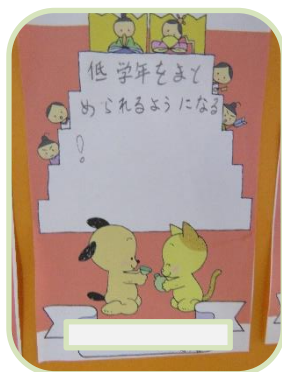 低学年をまと
められるようになる
!